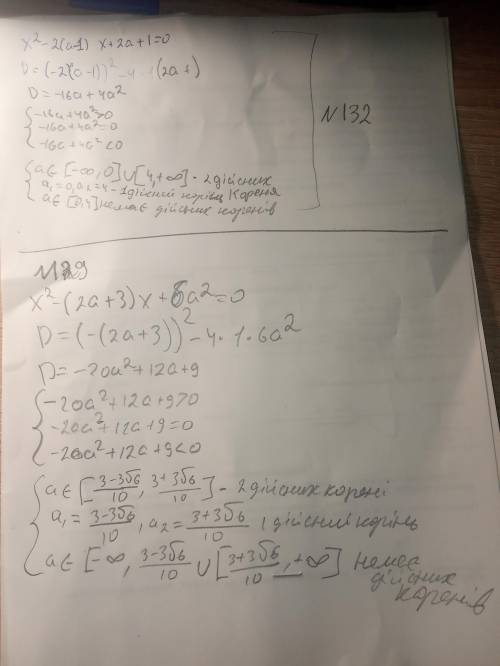 x²-2(a-1) x+2a+1=0
D=(-2(a-1))²-4·1(2a+)
D=-16a+4a²
{-16a+4a²>0
-16a+4a²=0
-16a+4a²<0
N132
{a∈[-∞,0]∪[4,+∞]-2 дійсних
a₁=0, a₂=4-1дійсний корінь Кореня
a∈[0,4] немає дійсних коренів
N129
x²-(2a+3)x+6a²=0
D=(-(2a+3))²-4·1·6a²
D=-20a²+12a+9
{-20a²+12a+9>0
-20a²+12a+9=0
-20a²+12a+9<0
{a∈[(3-3√6)/10, (3+3√6)/10]-2 дійсних корені
a₁=(3-3√6)/10, a₂=(3+3√6)/10 1 дійсний корінь
a∈[-∞, (3-3√6)/10 ∪[(3+3√6)/10, +∞] немає
дійсних
коренів